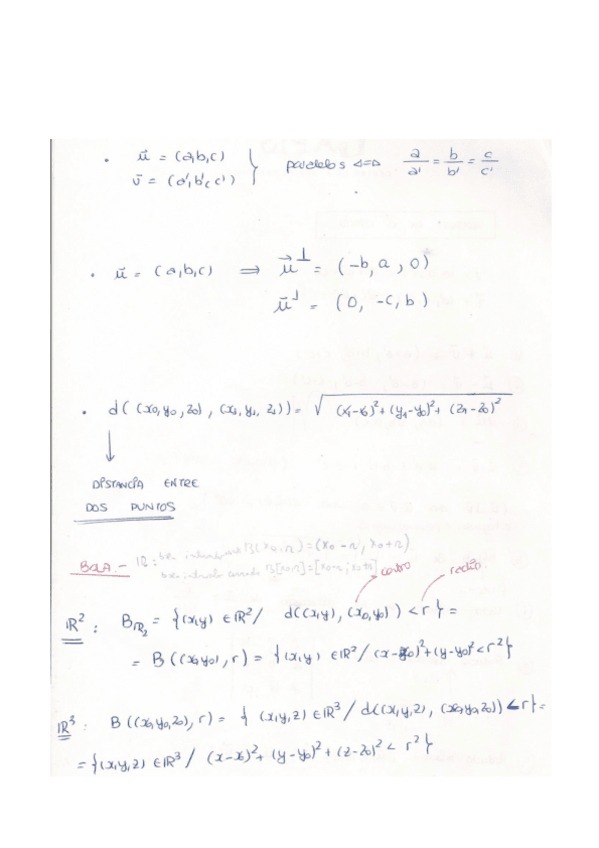 • u⃗ = (a,b,c) } paralelos ⇔ a/a' = b/b' = c/c'
v⃗ = (a',b',c')
• u⃗ = (a,b,c) ⇒ u⃗⊥ = (-b, a, 0)
u⃗⊥ = (0, -c, b)
• d((x0,y0,z0), (x1,y1,z1)) = √(x1-x0)²+(y1-y0)²+(z1-z0)²
↓
DISTANCIA ENTRE
DOS PUNTOS
BOLA.- IR: B(x0,r)=(x0-r, x0+r)
B[x0,r]=[x0-r, x0+r] centro radio.
IR²: B_IR2 = {(x,y) ∈ IR² / d((x,y), (x0,y0)) < r} =
= B((x0,y0), r) = {(x,y) ∈ IR² / (x-x0)²+(y-y0)² < r²}
IR³: B((x0,y0,z0), r) = {(x,y,z) ∈ IR³ / d((x,y,z), (x0,y0,z0)) < r} =
= {(x,y,z) ∈ IR³ / (x-x0)²+(y-y0)²+(z-z0)² < r²}